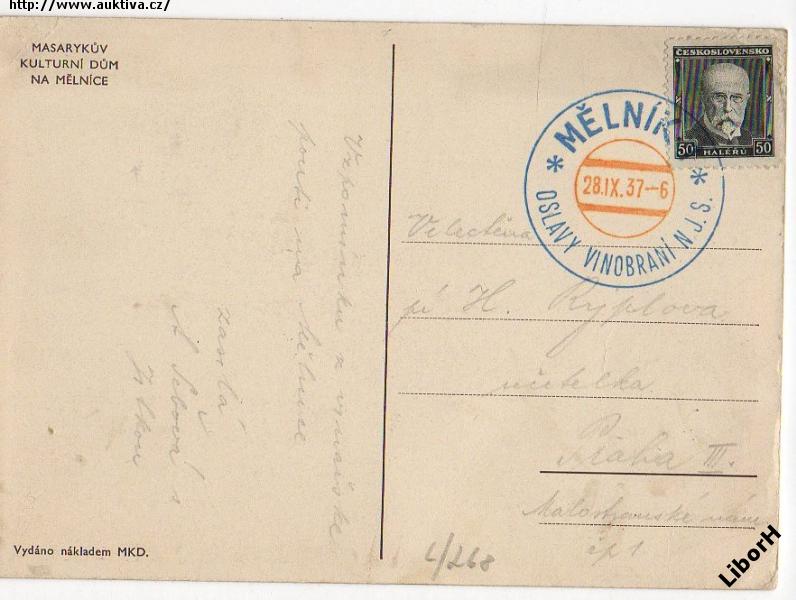 http://www.auktiva.cz/
MASARYKŮV
KULTURNÍ DŮM
NA MĚLNÍCE
ČESKOSLOVENSKO
50 HALÉŘŮ 50
* MĚLNÍK *
28.IX.37-6
OSLAVY VINOBRANÍ N.J.S.
Vzpomínku z vinařské
pouti na Mělníce
zasílá
A
s
Velectěná
pí H. Ryplova
učitelka
Praha III.
Malostranské nám
čp 1
Vydáno nákladem MKD.
L/268
LiborH